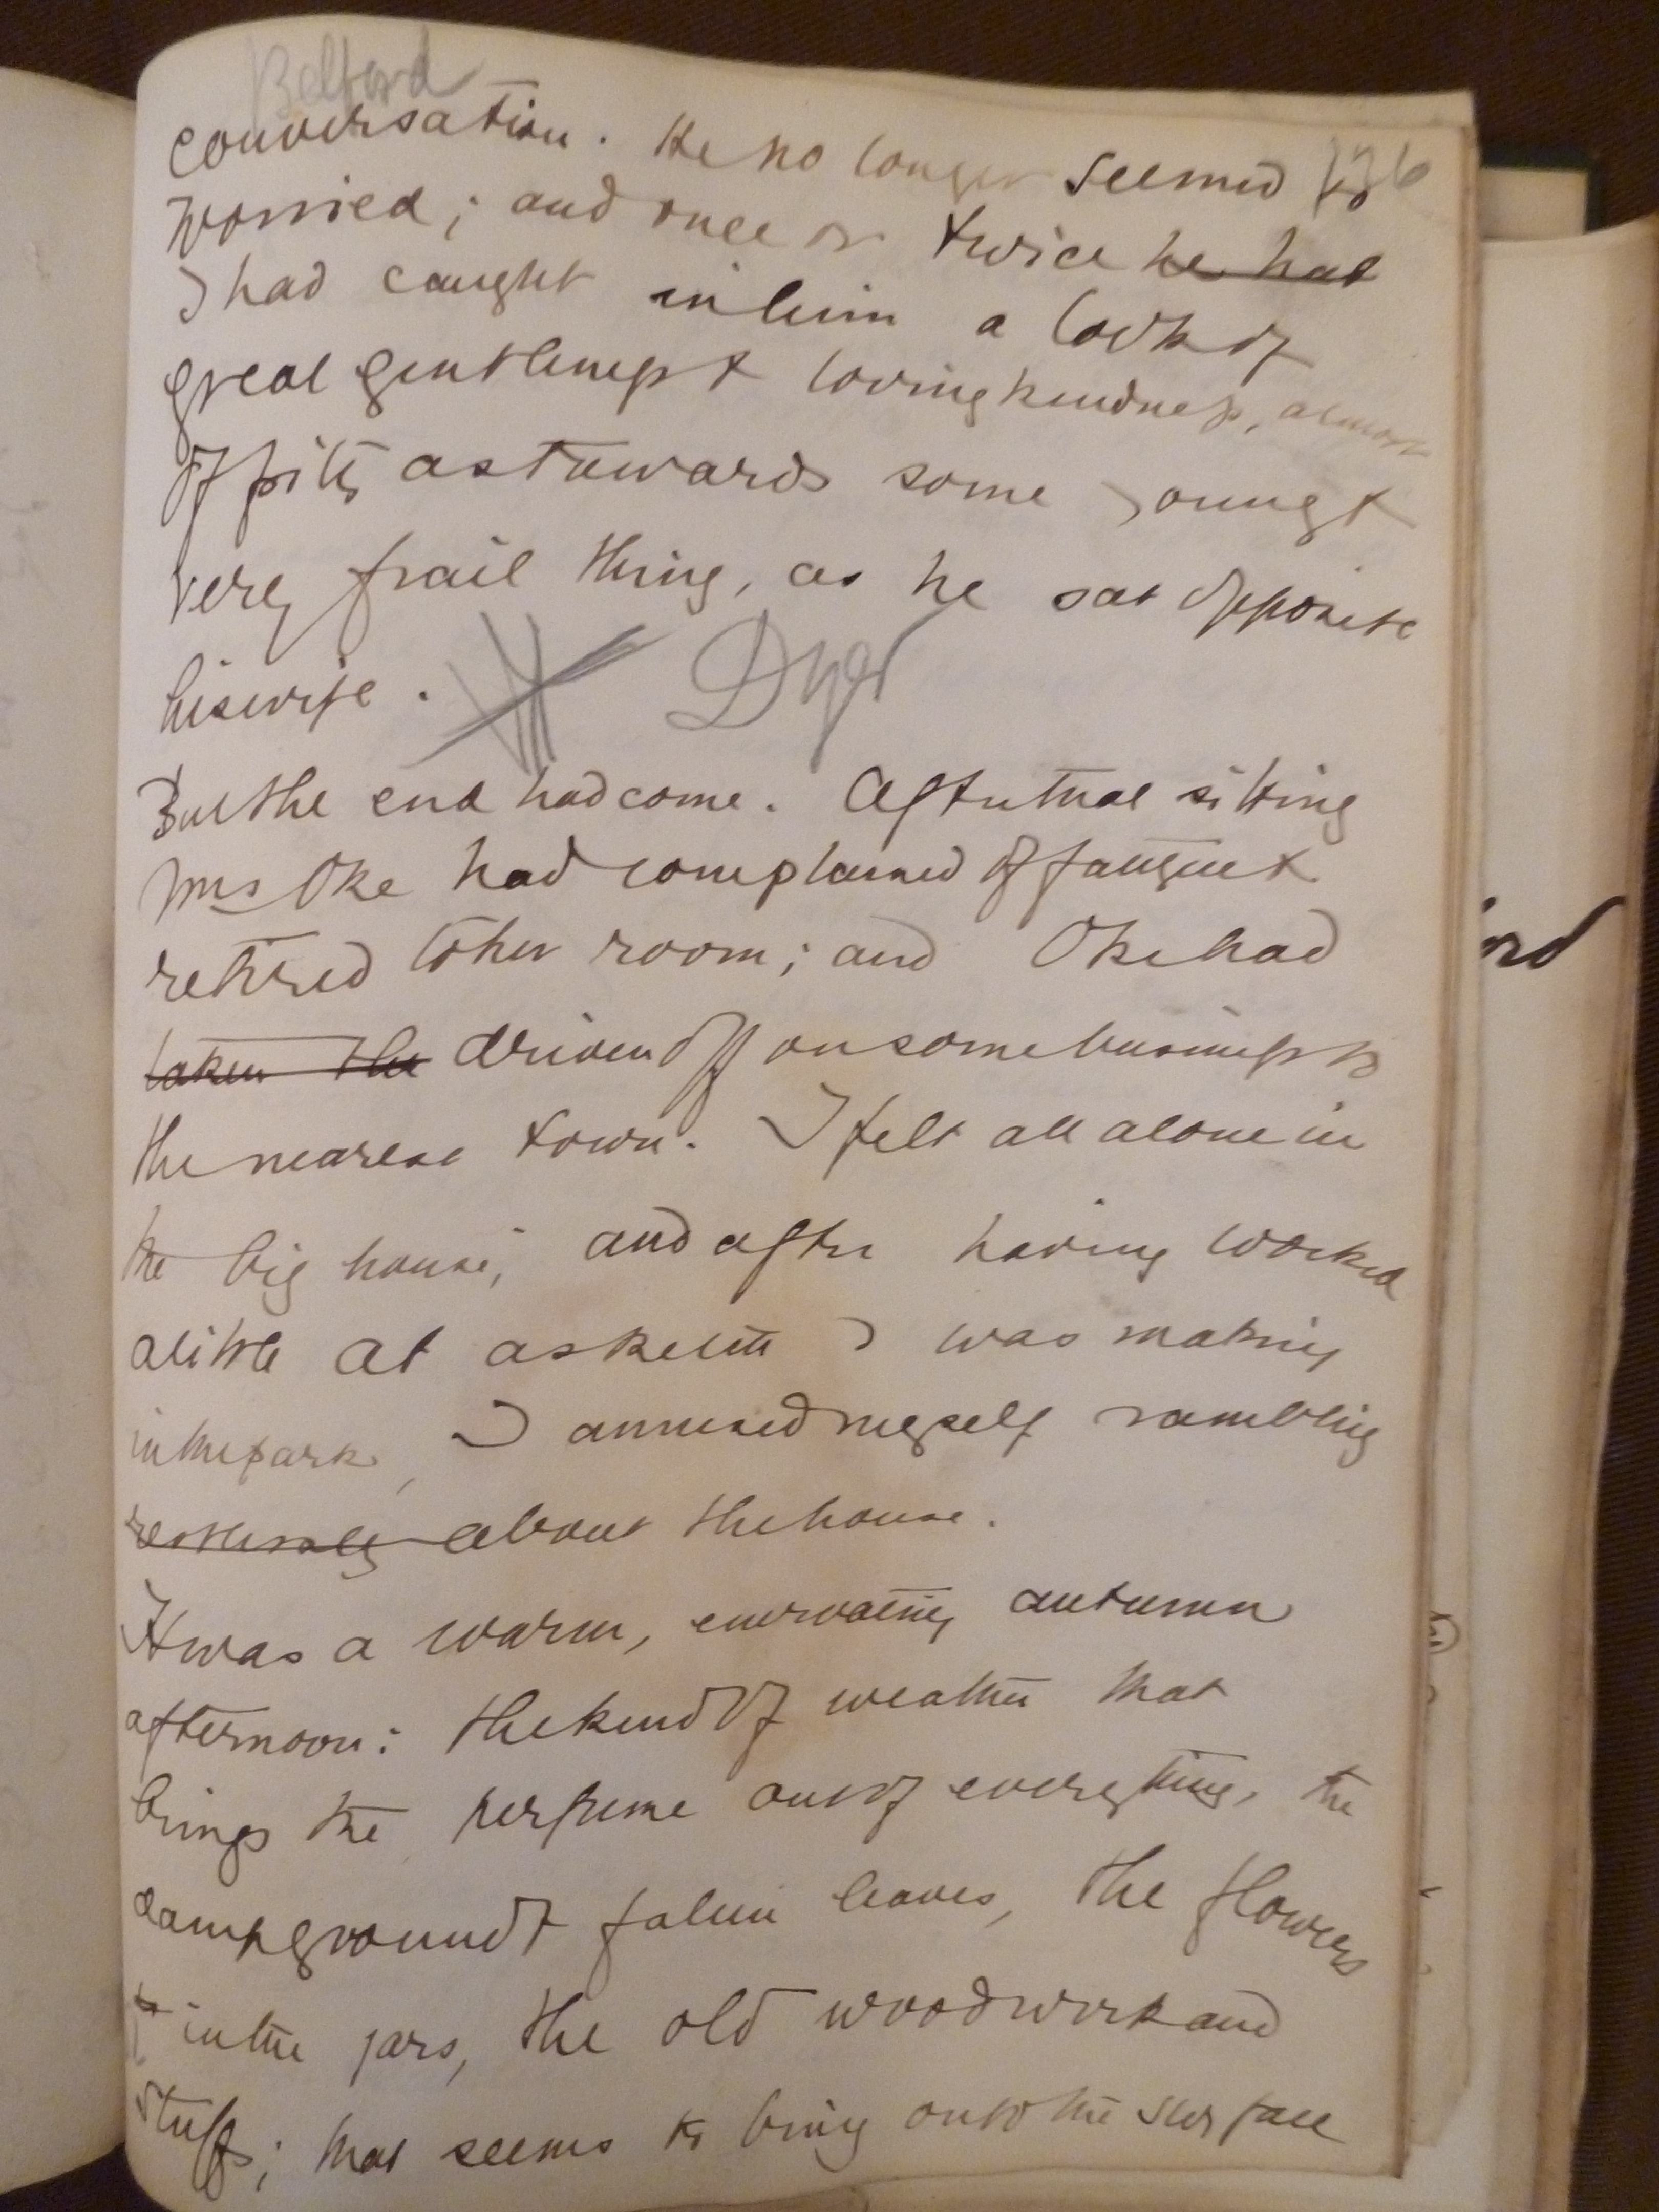 Belford
conversation. He no longer seemed so
136
worried; and once or twice he had
I had caught in him a look of
great gentleness & lovingkindness, almost
of pity, as towards some young &
very frail thing, as he sat opposite
his wife.
Dyer
But the end had come. After that sitting
Mrs Oke had complained of fatigue &
retired to her room; and Oke had
taken the driven off on some business to
the nearest town. I felt all alone in
the big house; and after having worked
a little at a sketch I was making
in the park, I amused myself rambling
restlessly about the house.
It was a warm, enervating autumn
afternoon: the kind of weather that
brings the perfume out of everything, the
damp ground & fallen leaves, the flowers
in the jars, the old woodwork and
stuffs; that seems to bring onto the surface